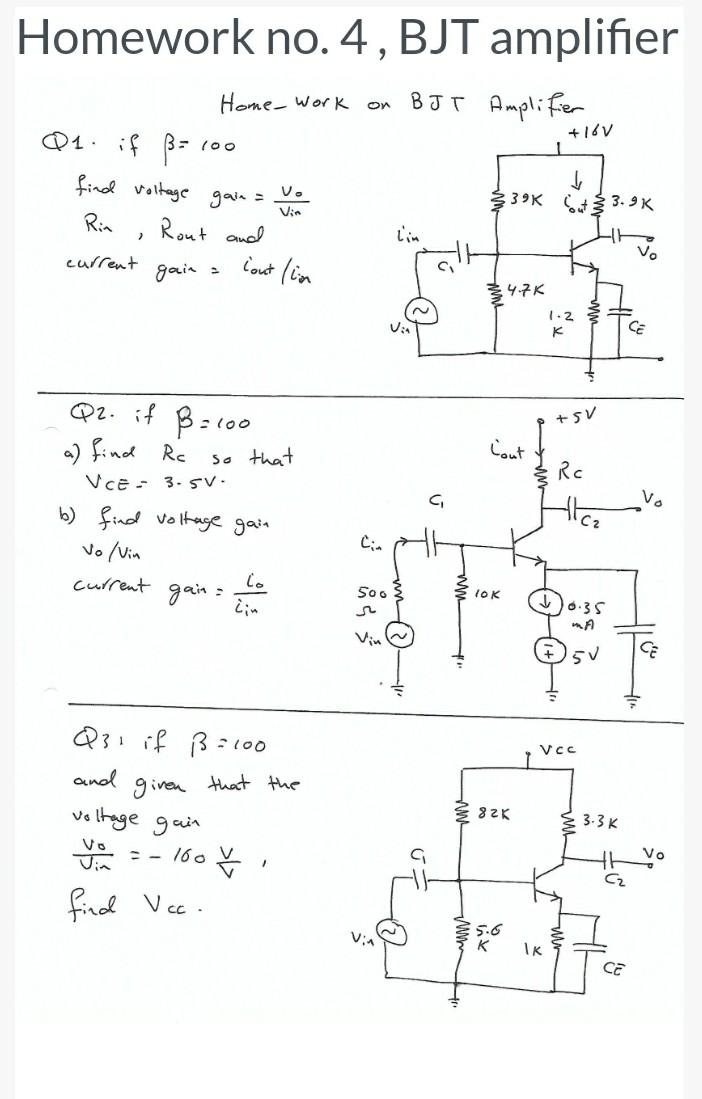 Homework no. 4 , BJT amplifier
Home-work on BJT Amplifier
Q1. if β= 100
find voltage gain = Vo
Vin
Rin , Rout and
current gain = iout/iin
+16V
39K
iout
3.9K
iin
C1
Vo
4.7K
Vin
1.2
K
CE
Q2. if β=100
a) find Rc so that
VCE = 3.5V.
b) find voltage gain
Vo/Vin
current gain = io
iin
+5V
iout
Rc
C1
Vo
C2
iin
500
Ω
10K
0.35
mA
Vin
5V
CE
Q3: if β=100
and given that the
voltage gain
Vo
Vin
= - 160 V
V
,
find Vcc.
Vcc
82K
3.3K
C1
Vo
C2
5.6
K
Vin
1K
CE